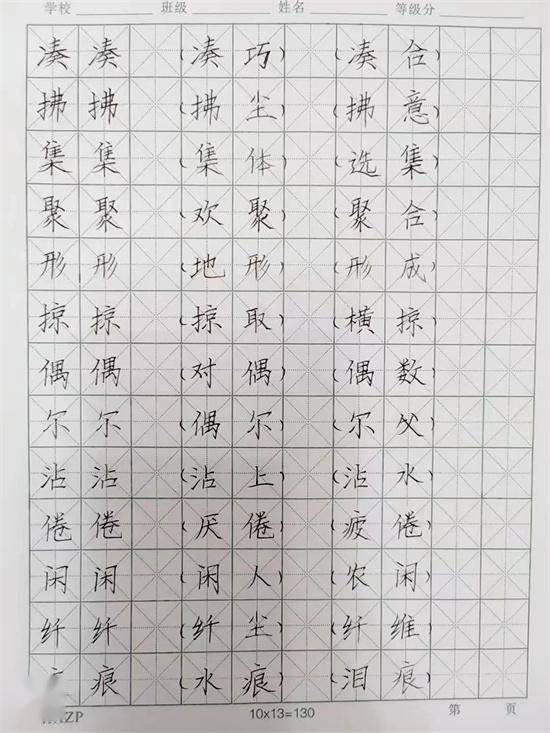 学校 班级 姓名 等级分
凑 凑 (凑 巧) (凑 合)
拂 拂 (拂 尘) (拂 意)
集 集 (集 体) (选 集)
聚 聚 (欢 聚) (聚 合)
形 形 (地 形) (形 成)
掠 掠 (掠 取) (横 掠)
偶 偶 (对 偶) (偶 数)
尔 尔 (偶 尔) (尔 父)
沾 沾 (沾 上) (沾 水)
倦 倦 (厌 倦) (疲 倦)
闲 闲 (闲 人) (农 闲)
纤 纤 (纤 尘) (纤 维)
痕 (水 痕) (泪 痕)
10×13=130 第 页